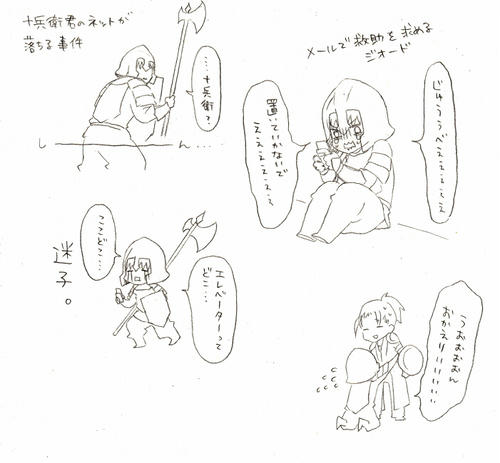 十兵衛君のネットが
落ちる事件
……十兵衛？
しーーん…
メールで救助を求める
ジオード
じゅうべえぇぇぇぇ
置いていかないで
えぇぇぇぇぇぇ
ここどこ…
迷子。
エレベーターって
どこ…
うおぉぉぉん
おかえりいいいいい